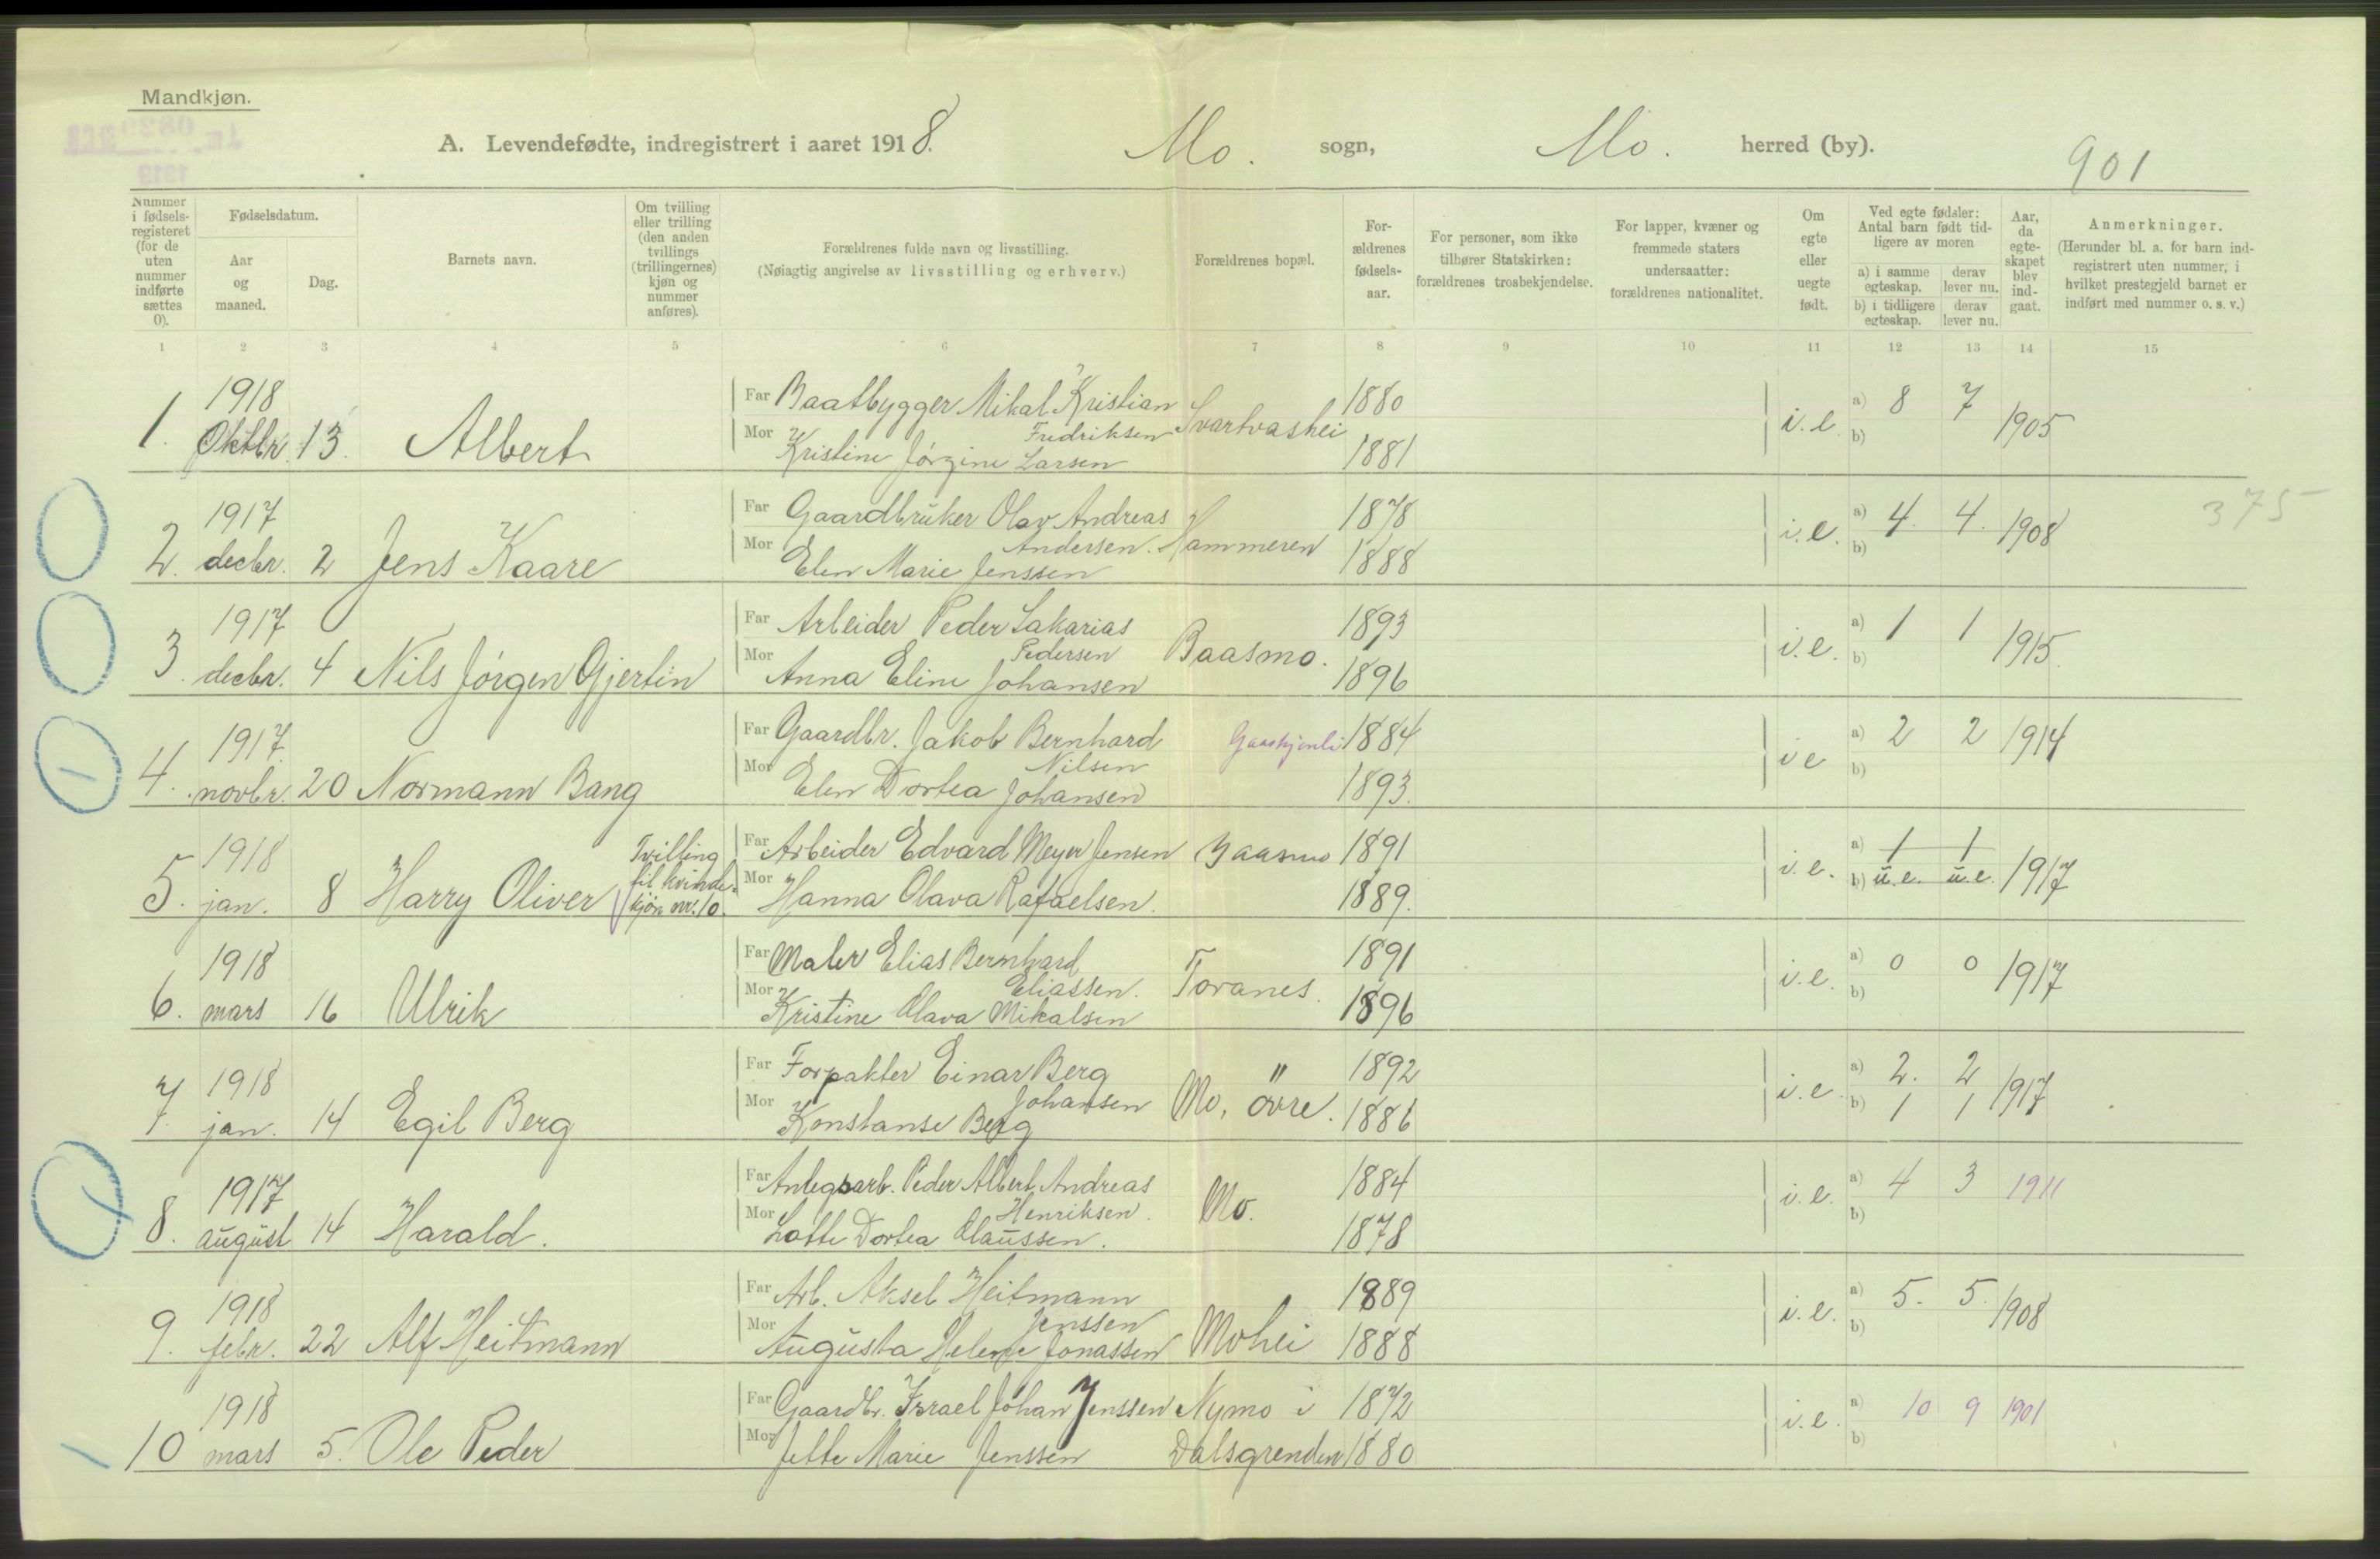 Mandkjøn.
A. Levendefødte, indregistrert i aaret 1918. Mo. sogn, Mo. herred (by). 901
Nummer i fødsels-registeret (for de uten nummer indførte sættes 0).
Fødselsdatum.
Aar og maaned.
Dag.
Barnets navn.
Om tvilling eller trilling (den anden tvillings (trillingernes) kjøn og nummer anføres).
Forældrenes fulde navn og livsstilling.
(Nøiagtig angivelse av livsstilling og erhverv.)
Forældrenes bopæl.
For-ældrenes fødsels-aar.
For personer, som ikke tilhører Statskirken: forældrenes trosbekjendelse.
For lapper, kvæner og fremmede staters undersaatter: forældrenes nationalitet.
Om egte eller uegte født.
Ved egte fødsler: Antal barn født tid-ligere av moren
a) i samme egteskap. derav lever nu.
b) i tidligere egteskap. derav lever nu.
Aar, da egte-skapet blev ind-gaat.
Anmerkninger.
(Herunder bl. a. for barn ind-registrert uten nummer, i hvilket prestegjeld barnet er indført med nummer o. s. v.)
1 2 3 4 5 6 7 8 9 10 11 12 13 14 15
1. 1918 Oktbr. 13. Albert
Far Baatbygger Mikal Kristian Fredriksen Svartvashei 1880
Mor Kristine Jörgine Larsen 1881
i.e. a) 8 7 b) 1905
2. 1917 decbr. 2 Jens Kaare
Far Gaardbruker Olav Andreas Andersen. Hammeren 1878
Mor Elen Marie Jenssen 1888
i.e. a) 4. 4. b) 1908 375
3. 1917 decbr. 4 Nils Jörgen Gjertin
Far Arbeider Peder Sakarias Pedersen Baasmo. 1893
Mor Anna Eline Johansen 1896
i.e. a) 1 1 b) 1915.
4. 1917. novbr. 20 Normann Bang
Far Gaardbr. Jakob Bernhard Nilsen 1884
Mor Elen Dortea Johansen 1893.
i e a) 2 2 b) 1914
5. 1918 jan. 8 Harry Oliver Tvilling til kvinde-kjön nr. 10.
Far Arbeider Edvard Meyer Jensen Baasmo 1891
Mor Hanna Olava Rafaelsen. 1889.
i.e. a) 1 1 b) u.e. u.e. 1917
6. 1918 mars 16 Ulrik
Far Maler Elias Bernhard Eliassen. Toranes. 1891
Mor Kristine Olava Mikalsen 1896
i.e. a) 0 0 b) 1917
7. 1918 jan. 14 Egil Berg
Far Forpakter Einar Berg Johansen Mo, övre. 1892
Mor Konstanse Berg 1886
i.e. a) 2. 2 b) 1 1 1917
8. 1917 august 14 Harald.
Far Anlegsarb. Peder Albert Andreas Henriksen. Mo. 1884
Mor Lotte Dortea Olaussen. 1878
i.e. a) 4 3 b) 1911
9. 1918 febr. 22 Alf Heitmann
Far Arb. Aksel Heitmann Jenssen Mohei 1889
Mor Augusta Helene Jonassen 1888
i.e. a) 5. 5. b) 1908
10 1918 mars 5. Ole Peder
Far Gaardbr. Israel Johan Jenssen Nymo i Dalsgrenden 1872
Mor Jette Marie Jenssen 1880
i.e. a) 10 9 b) 1901